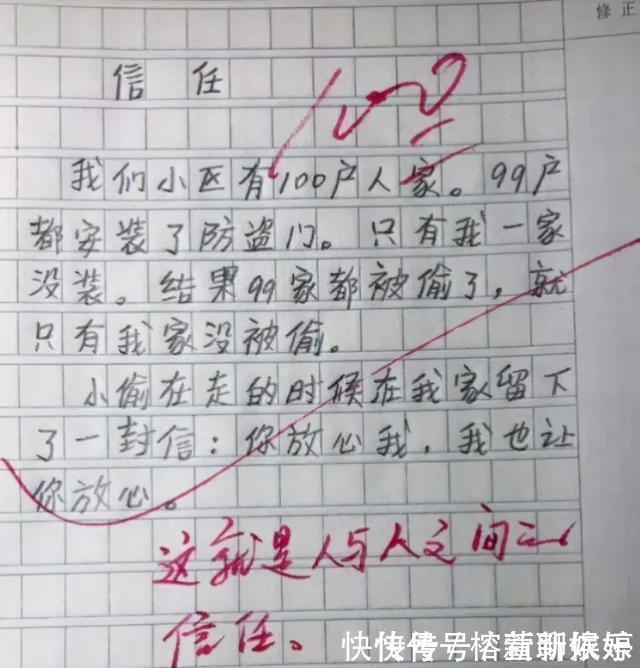 修正
信任
100
我们小区有100户人家。99户
都安装了防盗门。只有我一家
没装。结果99家都被偷了，就
只有我家没被偷。
小偷在走的时候在我家留下
了一封信：你放心我，我也让
你放心。
这就是人与人之间的
信任。
快传号